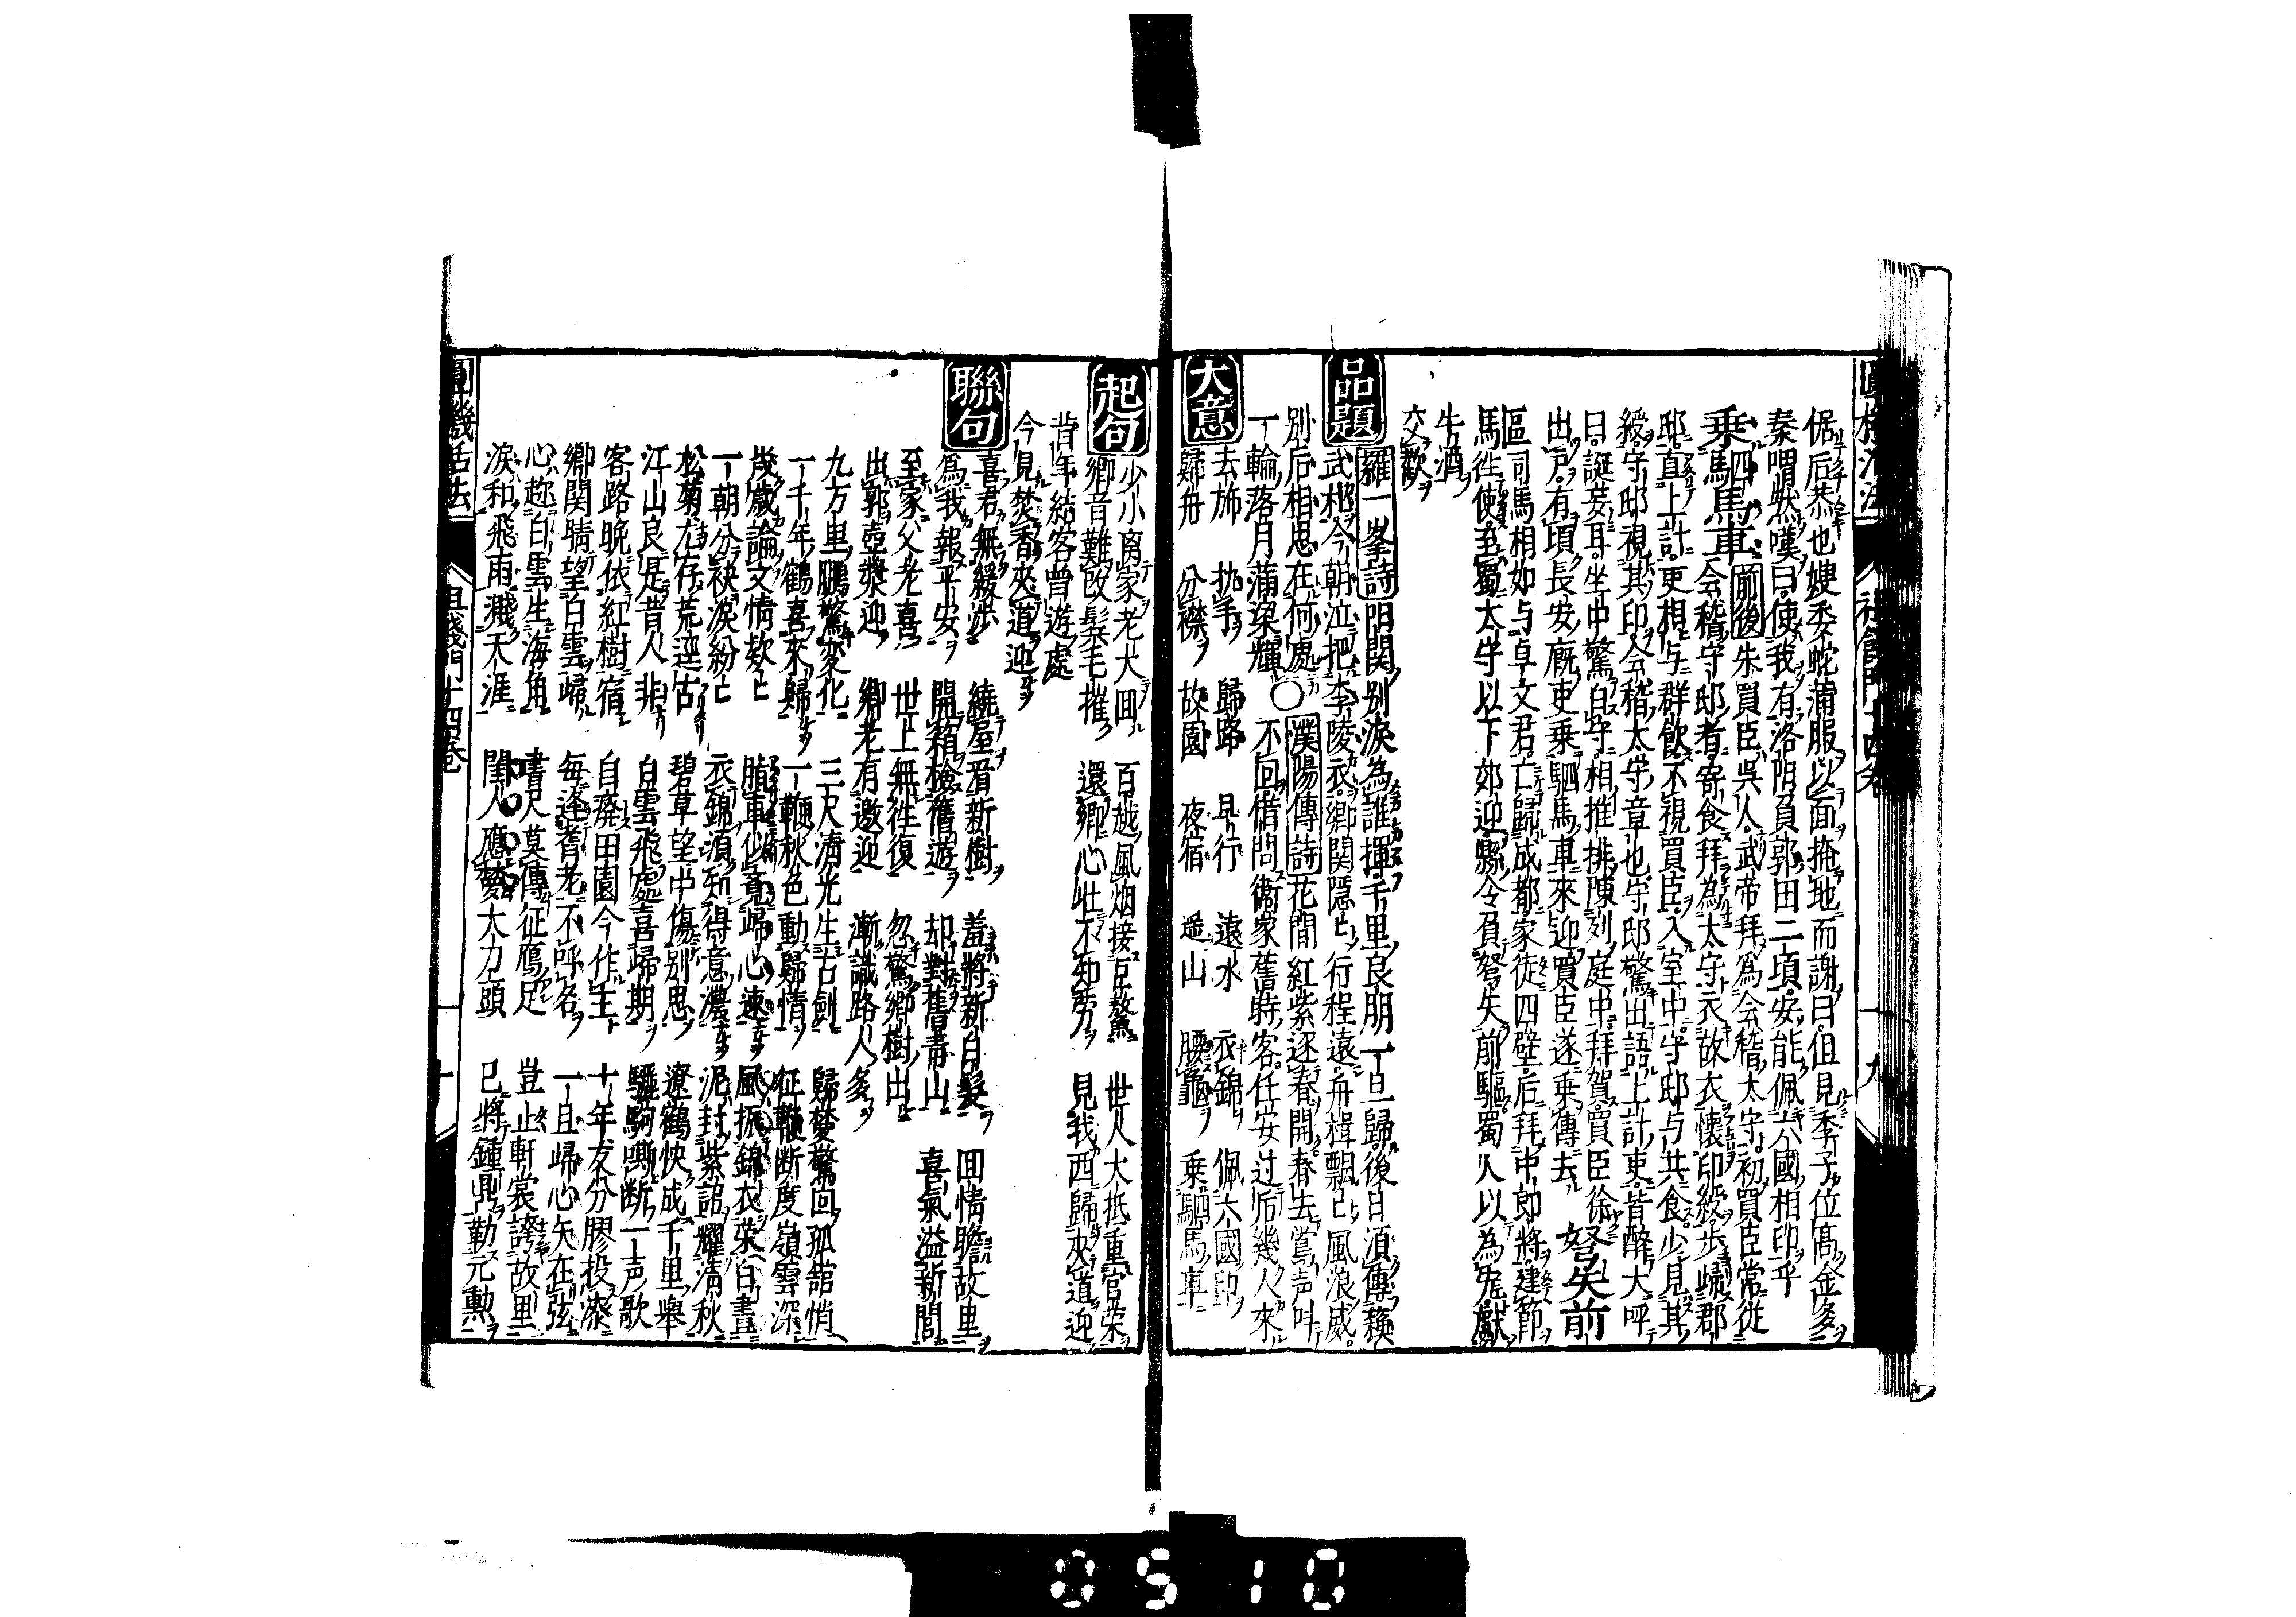 倨后恭也嫂委蛇蒲服以面掩地而謝曰但見季子位髙金多
秦喟然嘆曰使我有洛阳負郭田二頃安能佩六國相印乎
乗駟馬車 前後朱買臣吳人武帝拜為会稽太守初買臣常従
会稽守邸者寄食拜為太守衣故衣懐印綬步歸郡
邸直上計吏相与群飲不視買臣入室中守邸与共食少見其
綬守邸視其印会稽太守章也守邸驚出語上計吏皆醉大呼
曰誕妄耳坐中驚白守相推排陳列庭中拜賀買臣徐
出戸有頃長安廐吏乗駟馬車來迎買臣遂乗傳去 弩矢前
區 司馬相如与卓文君亡歸成都家徒四壁后拜中郎將建節
馬徃使至蜀太守以下郊迎縣令負弩矢前驅蜀人以為寵獻
牛酒
交歡
品題 羅一峯詩 阳関別淚為誰揮千里良朋一旦歸後日須傳蘓
武札今朝泣把李陵衣鄉関隠匕行程遠舟楫飄匕風浪威
別后相思在何處一輪落月蒲梁輝○濮陽傳詩 花間紅紫逐春開春去鶯声呌
不回借問衞家舊時客任安过后幾人來
大意 去斾 执手 歸路 早行 遠水 衣錦 佩六國印
歸舟 分襟 故園 夜宿 遥山 腰龜 乗駟馬車
起句 少小离家老大囬 百越風烟接巨鰲 世人大抵重官荣
鄉音難改鬂毛摧 還鄉心壮不知勞 見我西歸夾道迎
昔年結客曽遊處
今見焚香夾道迎
聯句 喜君無緩步 繞屋畨新樹 羞將新白髮 囬情瞻故里
為我報平安 開箱檢舊遊 却對舊青山 喜氣溢新閭
至家父老喜 世上無徃復 忽驚鄉樹出
出郭壺漿迎 鄉老有邀迎 漸識路人多
九万里鵬驚変化 三尺清光生古劍 歸夢驚回孤舘悄
一千年鶴喜來歸 一鞭秋色動歸情 征鞭断度嶺雲深
歲歲論文情欵匕 脂車似覔歸心速 風振錦衣荣白晝
一朝分袂淚紛匕 衣錦須知得意濃 泥封紫詔耀清秋
松菊尤存荒逕古 碧草望中傷别思 遼鶴快成千里舉
江山良是昔人非 白雲飛處喜歸期 驪駒嘶断一声歌
客路晩依紅樹宿 自廃田園今作主 十年友分膠投漆
鄉関晴望白雲歸 每逢耆老不呼名 一旦歸心矢在弦
心趂白雲生海角 書尺莫傳征鴈足 豈止軒裳誇故里
淚和飛雨濺天涯 閨人應夢大刀頭 已將鍾鼎勒元勲
圓機活法 且餞門十四卷
0510